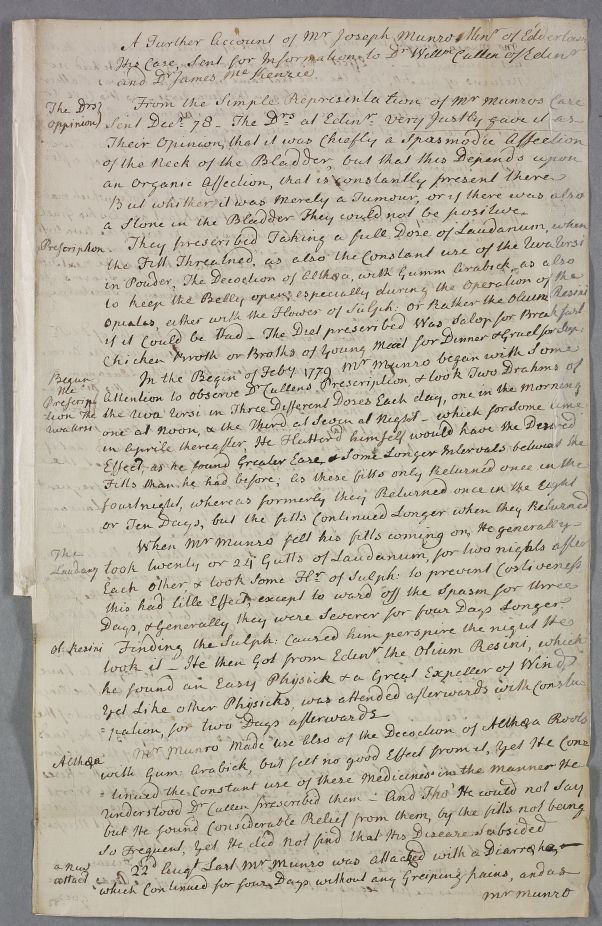 A Further Account of Mr Joseph Munro Minr of Edderton
His Case, Sent for Information to Dr Willm Cullen of Edinr
and Dr James McKenzie
The Drs
Oppinion
From the Simple Representation of Mr Munros Case
Sent Decr 78 – The Drs at Edinr very Justly gave it as
Their Opinion, that it was Chiefly a Spasmodic Affection
of the Neck of the Bladder, but that this Depends upon
an Organic Affection, that is constantly present there
But whither it was Merely a Tumour, or if there was also
a Stone in the Bladder They could not be positive.
Prescription
They prescribed Taking a full Dose of Laudanum, when
the Fitt Threatned, as also the Constant use of the Uva Ursi
in Pouder, The Decoction of Althæa, with Gumm Arabick, as also
to keep the Belly open, especially during the Operation of the
Opiates, either with the Flower of Sulph: or Rather the Olium Resini
if it Could be Had – The Diet prescribed Was Salop for Breakfast
Chicken Broth or Broths of young Meat for Dinner & Gruel for Sup:
Begun
the
Prescrip
tion The
uva ursi
In the Begin of Feby 1779 Mr Munro began with Some
Attention to observe Dr Cullens Prescription & took Two Drahms of
the Uva Ursi in Three Different Doses Each day, one in the Morning
one at Noon, & the Third at Seven at Night – which for some time
in Aprile thereafter, He Flatter'd himself would have the Desired
Effect, as he found Greater Ease & Some Longer Intervals between the
Fitts than he had before; as these fitts only Returned once in the
fourtnight, whereas formerly they Returned once in the Eight
or Ten Days, but the fitts Continued Longer when they Returned
The
Laudany
When Mr Munro felt his fitts coming on, He generally
took twenty or 24 Gutts of Laudanum, for two nights after
Each other, & took Some Flr of Sulph: to prevent Costiveness
this had litle Effect, except to ward off the Spasm for three
Days, & Generally they were Severer for four Days Longer.
ol. Resini
Finding the Sulph: Caused him perspire the night He
took it – He then Got from Edinr the Olium Resini, which
he found an Easy Physick & a Great Expeller of Wind,
yet Like other Physicks, was attended afterwards with Constu
:pation, for two Days afterwards
Althæa
Mr Munro Made use also of the Decoction of Althæa Roots
with Gum: Arabick, but felt no good Effect from it, yet He Con
:tinued the Constant use of these Medicines in the Manner He
Understood Dr Cullen prescribed them – And Tho' He could not Say
but He found Considerable Relief from them, by the fitts not being
so frequent, yet He did not find that His Disease Subsided
a New
attact
22d Augt Last Mr Munro was attacked with a Diarrohea,
which Continued for four Days without any Greiping pains, and as
Mr Munro